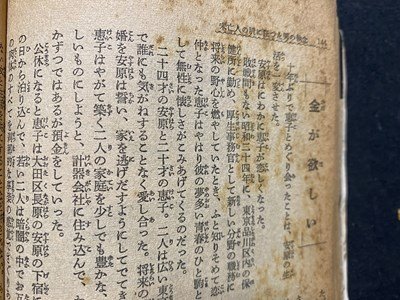 金が欲しい
十年ぶりで恵子とめぐり会ったことは、安原の生
活を一変させた。
安原はにわかに恵子が恋しくなった。
敗戦間もない昭和二十四年に、東京品川区内の保
健所に勤め、厚生事務官として新しい分野の職務に
将来の野心を燃やしていたとき、ふと知りそめて恋
仲となった恵子はやはり彼の夢多い青春のひと駒と
して無性に懐しさがこみあげてくるのだった。
二十四才の安原と二十才の恵子。二人は広い東
で誰にも気がねすることなく愛し合った。将来の
婚を安原は誓い、家を逃げだすようにしてでてき
恵子はやがて築く二人の家庭を少しでも豊かな、
しいものにしようと、計器会社に住み込んで、
かずつではあるが預金をしていった。
公休になると恵子は大田区長原の安原の下宿に
の日から泊り込んで、若い二人は暗闇の中でお互